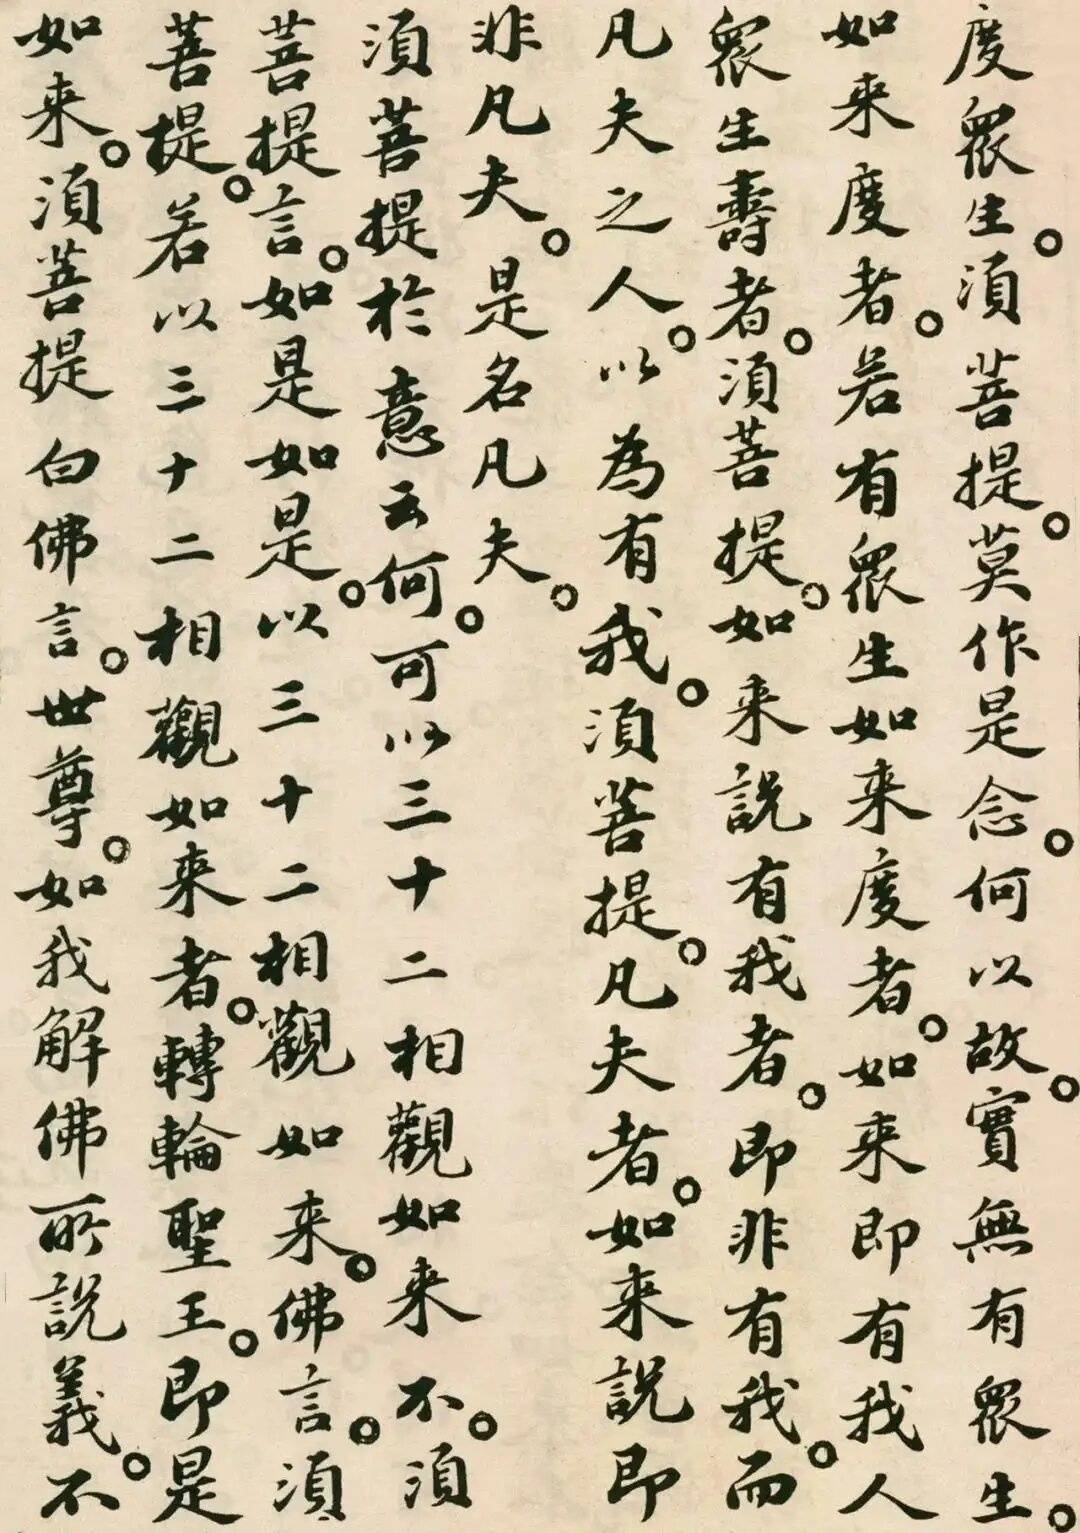 度眾生。須菩提。莫作是念。何以故。實無有眾生。
如来度者。若有眾生如来度者。如来即有我人
眾生壽者。須菩提。如来說有我者。即非有我。而
凡夫之人。以為有我。須菩提。凡夫者。如来說即
非凡夫。是名凡夫。
須菩提於意云何。可以三十二相觀如来不。須
菩提言。如是如是。以三十二相觀如来。佛言。須
菩提。若以三十二相觀如来者。轉輪聖王。即是
如来。須菩提白佛言。世尊。如我解佛所說義。不